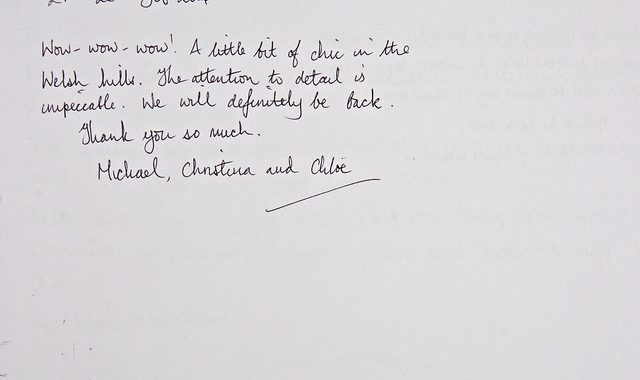 Wow - wow - wow! A little bit of chic in the
Welsh hills. The attention to detail is
impeccable. We will definitely be back.
Thank you so much.
Michael, Christina and Chloë